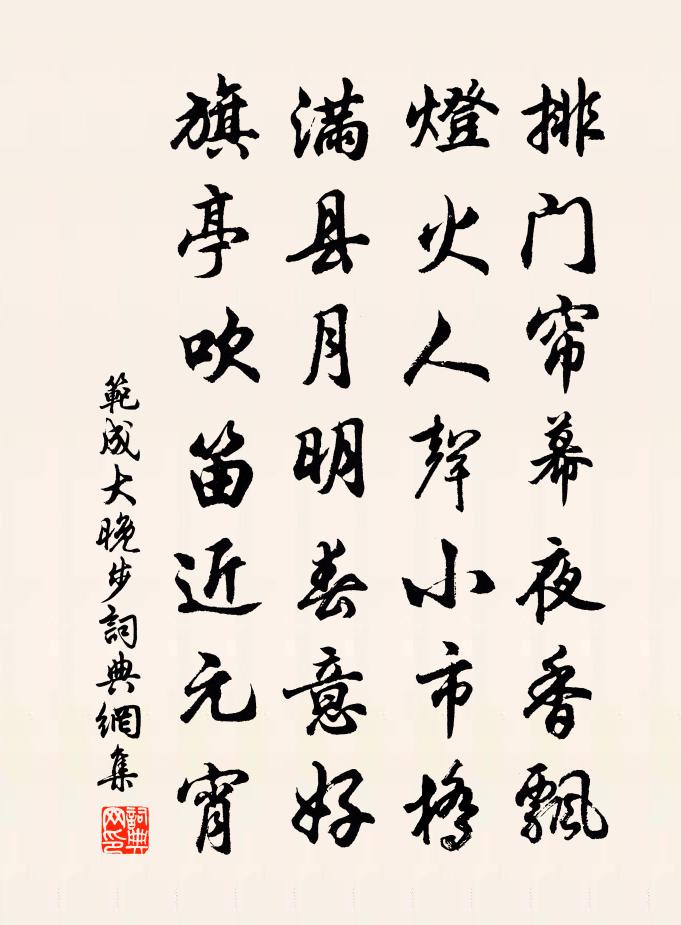 排门帘幕夜香飘
燈火人聲小市橋
满县月明春意好
旗亭吹笛近元宵
範成大晚步詞典網集
詞典网印